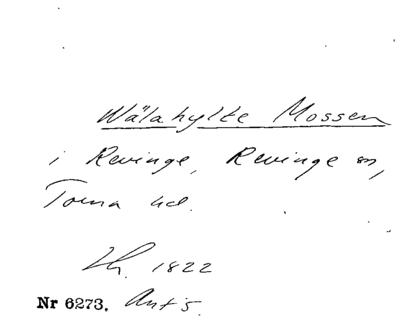 Wälahylte Mossen
i Revinge, Revinge sn,
Torna hd.
Lh. 1822
Nr 6273. Ant 5.